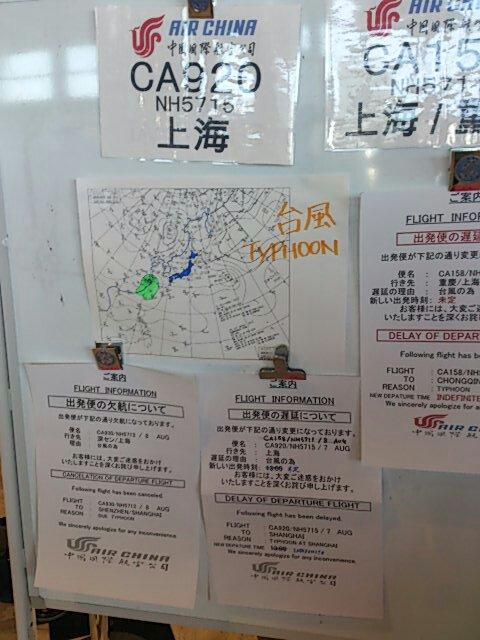 AIR CHINA
中国国際航空公司
CA920
NH5715
上海
AIR CHINA
中国国際
上海 /
台風
TYPHOON
ご案内
FLIGHT INFORMATION
出発便の欠航について
出発便が下記の通り欠航になっております。
行き先 : 深セン/上海
台風の為
お客様には、大変ご迷惑をおかけ
いたしますことを深くお詫び申し上げます。
CANCELATION OF DEPARTURE FLIGHT
Following flight has been canceled.
FLIGHT
TO : SHENZHEN/SHANGHAI
REASON : DUE TYPHOON
We sincerely apologize for any inconvenience.
AIR CHINA
中国国際航空公司
ご案内
FLIGHT INFORMATION
出発便の遅延について
出発便が下記の通り変更になっております。
便名 : CA920/NH5715 / 7 AUG
行き先 : 上海
遅延の理由 : 台風の為
新しい出発時刻:
お客様には、大変ご迷惑をおかけ
いたしますことを深くお詫び申し上げます。
DELAY OF DEPARTURE FLIGHT
Following flight has been delayed.
FLIGHT : CA920/NH5715 / 7 AUG
TO : SHANGHAI
REASON : TYPHOON AT SHANGHAI
We sincerely apologize for any inconvenience.
AIR CHINA
中国国際航空公司
ご案内
FLIGHT INFOR
出発便の遅延
出発便が下記の通り変更
便名 : CA158/NH
行き先 : 重慶/上海
遅延の理由 : 台風の為
新しい出発時刻: 未定
お客様には、大変ご
いたしますことを深くお詫
DELAY OF DEPAR
Following flight has be
FLIGHT : CA158/NH5
TO : CHONGQIN
REASON : TYPHOON
NEW DEPATURE TIME INDEFINITE
We sincerely apologize for a
AIR CH
中国国際